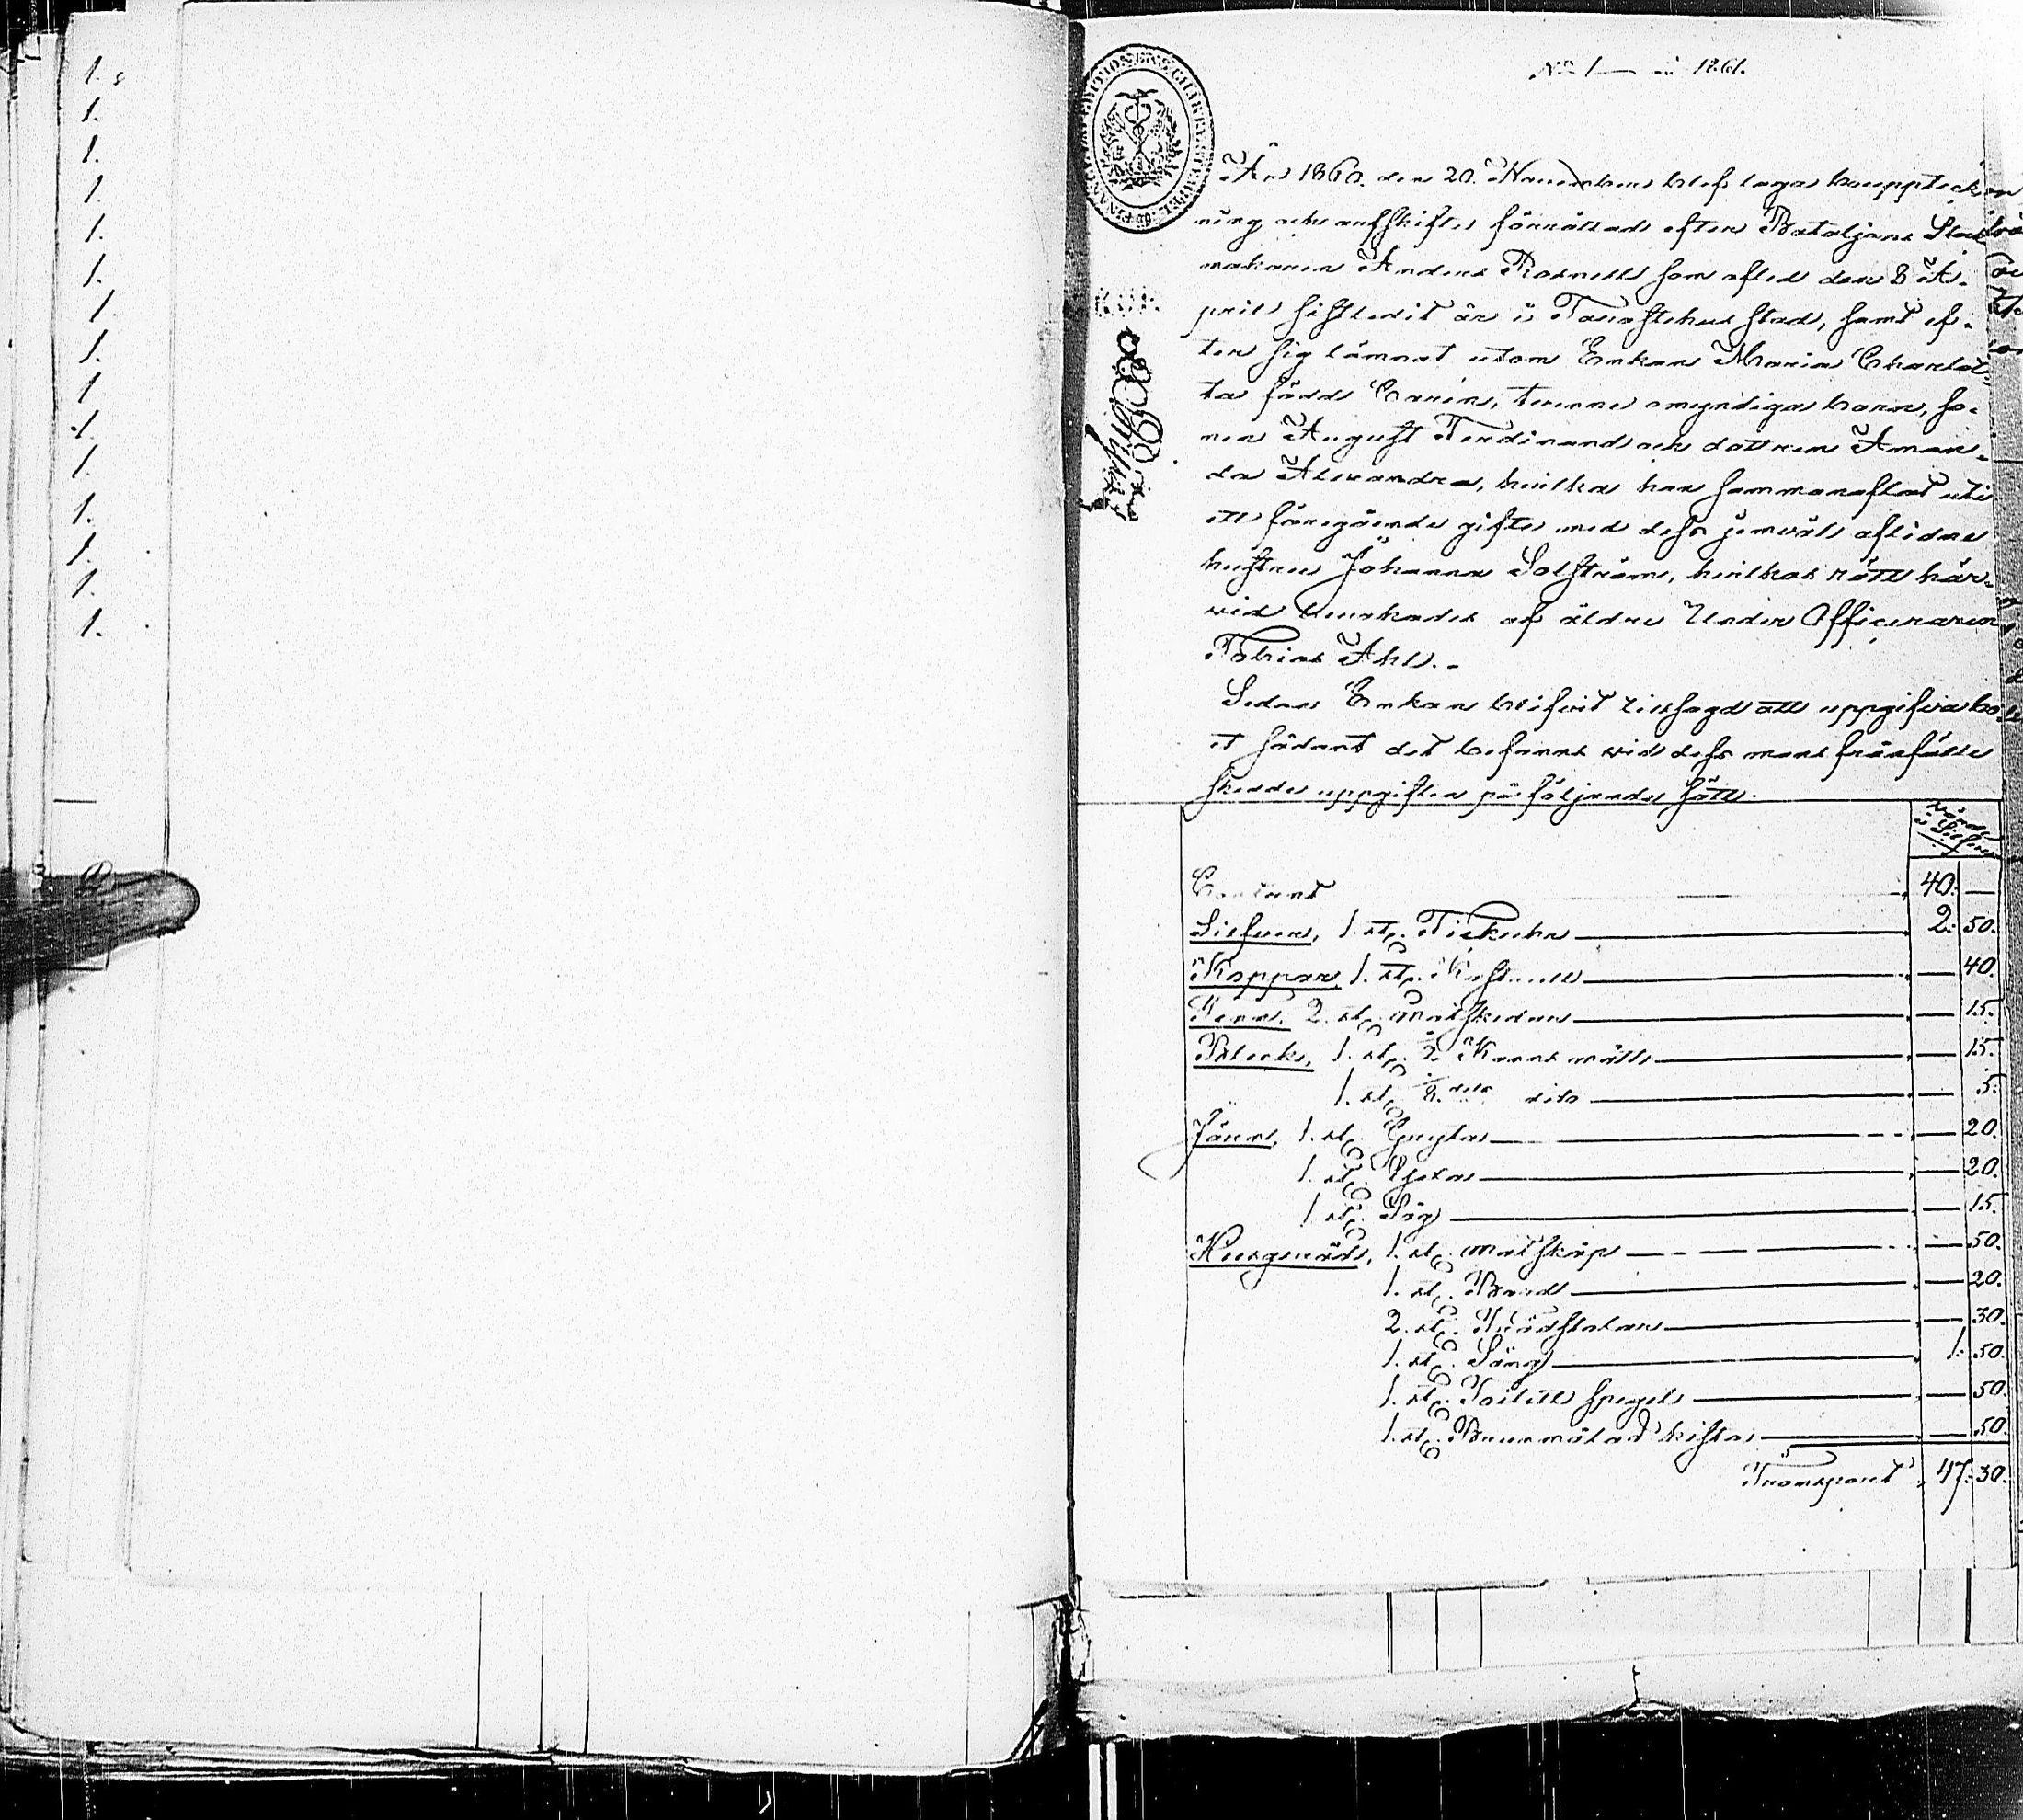 1.
1.
1.
1.
1.
1.
1.
1.
1
1.
1.
1.
1.
1.
1.
No 1 1861.
År 1860. den 20. November blef laga bouppteck
ning och arfskifte förrättad efter Bataljons Stad
makaren Anders Rosnell som afled den 8 A-
pril sistledit år i Tavastehus stad, samt ef-
ter sig lämnat utom Enkan Maria Charlot-
ta född, tvenne omyndiga barn, so-
nen August Ferdinand och dottren Aman-
da Alexandra, hvilka han sammanaflat uti
ett föregående gifte med dess jemväl aflidne
hustru Johanna Solström, hvilkas rätt här-
vid bevakades af äldre Under Officeraren
Tobias Ahl.-
Sedan Enkan blifvit tillsagd att uppgifva bo-
et sådant det befanns vid dess mans frånfälle
skedde uppgiften på följande sätt.
i Silfver
Contant 40. —
Silfver, 1. st. Fickuhr 2. 50.
Koppar, 1. st. — 40.
Tenn. 2. st. Matskedar — 15.
Bleck, 1. st. Kanns mått — 15.
1. st. 8.dels dito — 5.
Järn, 1. st. Gryta — 20.
1. st. — 20.
1 st. Såg — 15.
Husgeråd, 1. st. Matskåp — 50.
1. st. Bord — 20.
2. st. Trädstolar — 30.
1. st. Säng 1. 50.
1. st. Toilett spegel — 50.
1. st. Brunmålad kista — 50.
Transport 47. 30.